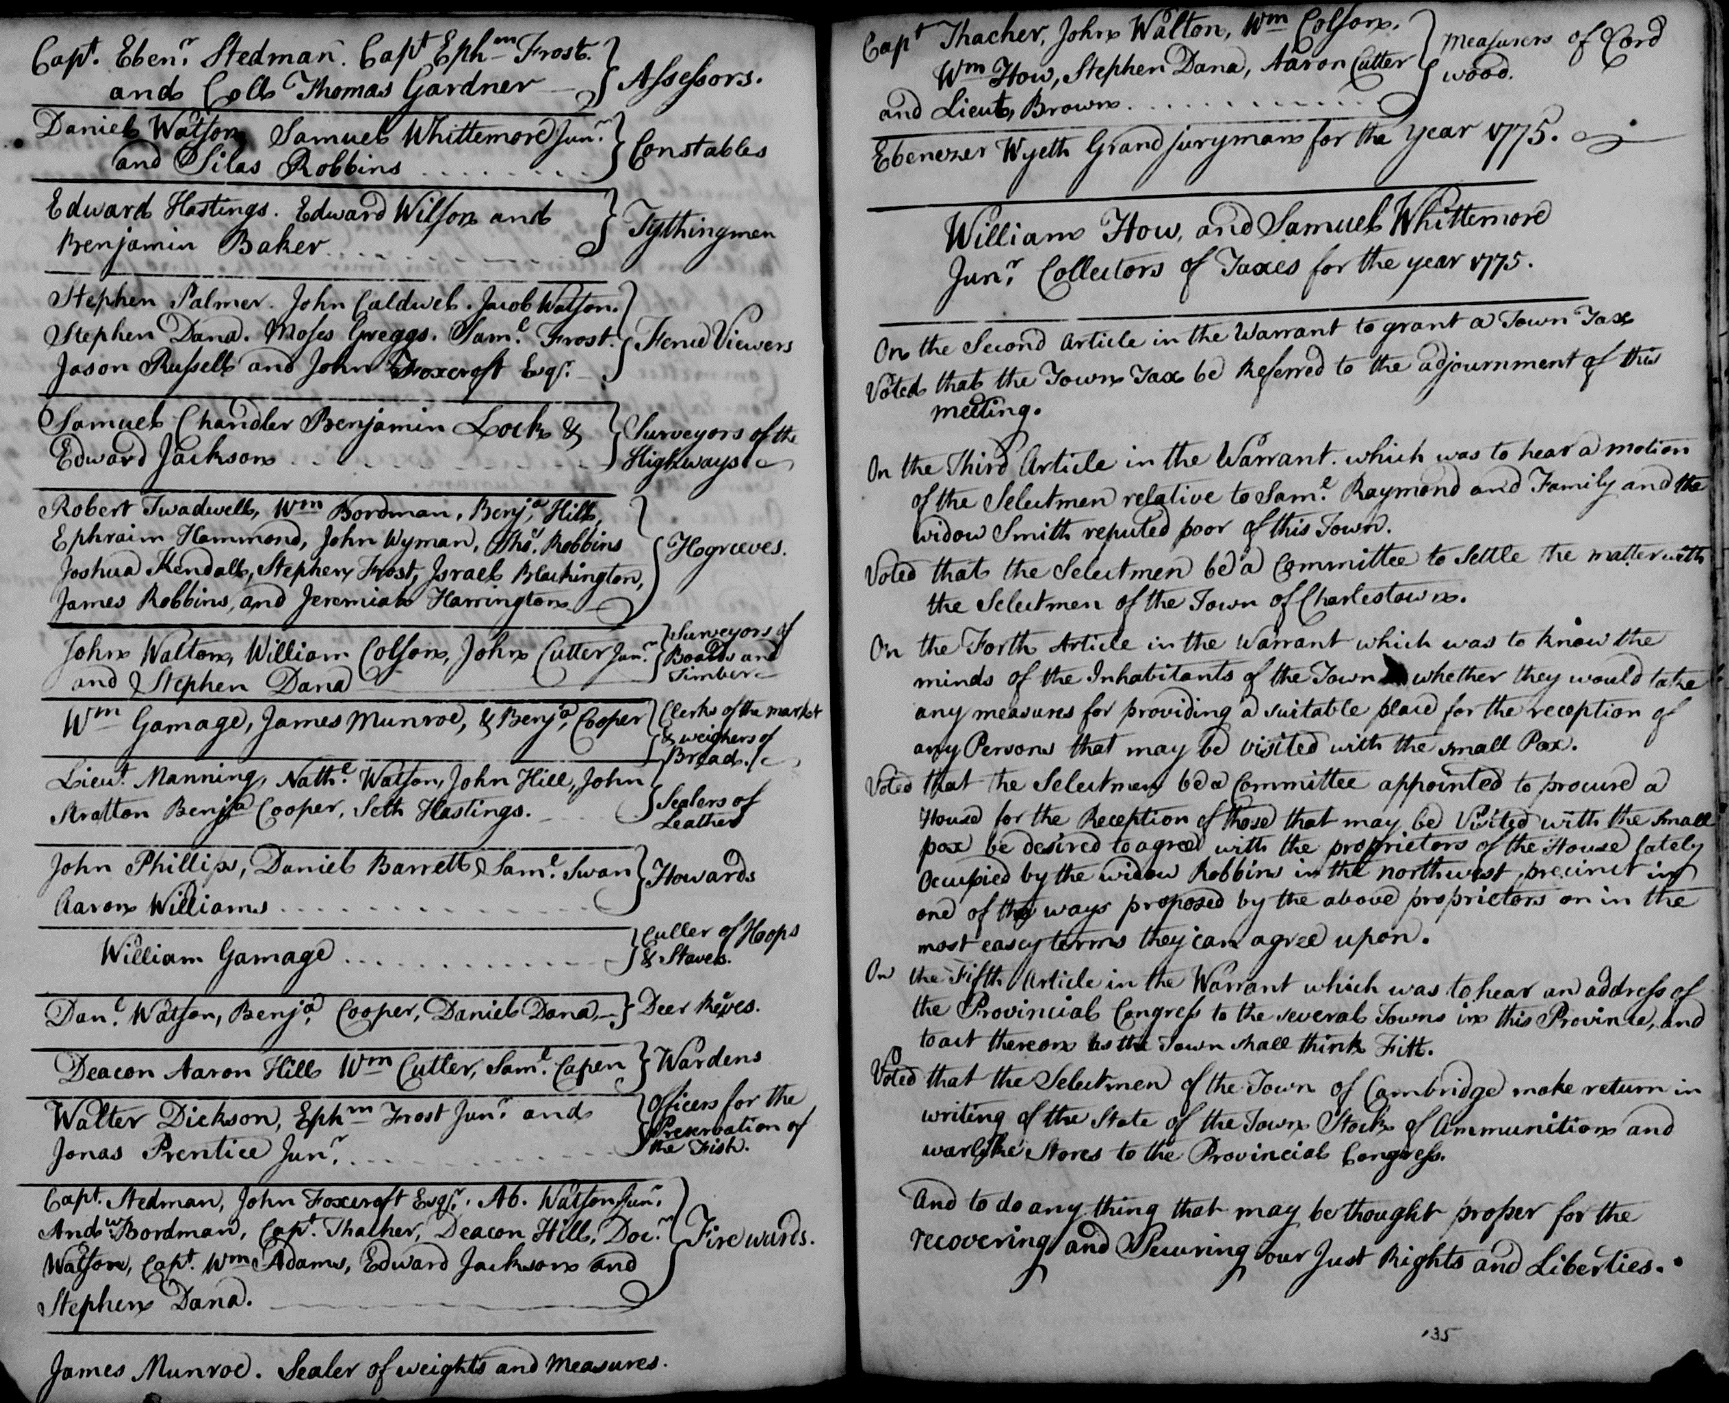 Capt. Ebenr. Stedman. Capt Ephm Frost.
and Coll Thomas Gardner
Assessors.
Daniel Watson Samuel Whittemore Junr.
and Silas Robbins . . . . . . . .
Constables
Edward Hastings. Edward Wilson and
Benjamin Baker . . . . . . . .
Tythingmen
Stephen Palmer. John Caldwel. Jacob Watson.
Stephen Dana. Moses Greggs. Saml. Frost.
Jason Russell and John Foxcroft Esqr.
Fence Viewers
Samuel Chandler Benjamin Lock &
Edward Jackson
Surveyors of the
Highways
Robert Twadwell, Wm Bordman, Benja. Hill,
Ephraim Hammond, John Wyman, Thos. Robbins
Joshua Kendall, Stephen Frost, Israel Blackington,
James Robbins, and Jeremiah Harrington
Hogreeves.
John Walton, William Colson, John Cutter Junr.
and Stephen Dana
Surveyors of
Boards and
Timber
Wm Gamage, James Munroe, & Benja. Cooper
Clerks of the market
& weighers of
Bread. &c
Lieut. Manning, Nathl. Watson, John Hill, John
Stratton Benja Cooper, Seth Hastings.
Sealers of
Leather
John Phillips, Daniel Barrett & Saml. Swan
Aaron Williams . . . . . . . .
Howards
William Gamage . . . . . . . .
Culler of Hoops
& Staves.
Danl. Watson, Benja. Cooper, Daniel Dana
Deer Reves.
Deacon Aaron Hill Wm Cutler, Saml. Capen
Wardens
Walter Dickson, Ephm Frost Junr. and
Jonas Prentice Junr.
Officers for the
Preservation of
the Fish.
Capt. Stedman, John Foxcroft Esqr. Ab. Watson Junr.
Andw Bordman, Capt. Thacher, Deacon Hill, Docr.
Watson, Capt. Wm Adams, Edward Jackson and
Stephen Dana.
Fire wards.
James Munroe. Sealer of weights and measures.
Capt Thacher, John Walton, Wm Colson.
Wm How, Stephen Dana, Aaron Cutter
and Lieut, Brown. . . . . . . .
measurers of Cord
wood.
Ebenezer Wyeth Grand juryman for the year 1775.
William How, and Samuel Whittemore
Junr. Collectors of Taxes for the year 1775.
On the Second Article in the Warrant to grant a Town Tax
Voted that the Town Tax be Referred to the adjournment of this
meeting.
On the Third Article in the Warrant. which was to hear a motion
of the Selectmen relative to Saml. Raymond and Family and the
widow Smith reputed poor of this Town.
Voted that the Selectmen be a Committee to Settle the matter with
the Selectmen of the Town of Charlestown.
On the Forth Article in the Warrant which was to know the
minds of the Inhabitants of the Town whether they would take
any measures for providing a suitable place for the reception of
any Persons that may be visited with the small Pox.
Voted that the Selectmen be a Committee appointed to procure a
House for the Reception of those that may be Visited with the small
pox be desired to agree with the proprietors of the House lately
Occupied by the widow Robbins in the northwest precinct in
one of the ways proposed by the above proprietors on in the
most easey terms they can agree upon.
On the Fifth Article in the Warrant which was to hear an address of
the Provincial Congress to the several Towns in this Province, and
to act thereon as the Town shall think Fitt.
Voted that the Selectmen of the Town of Cambridge make return in
writing of the State of the Town Stock of Ammunition and
warlike Stores to the Provincial Congress.
And to do any thing that may be thought proper for the
recovering and Securing our Just Rights and Liberties.
135